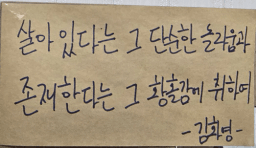 살아있다는 그 단순한 놀라움과
존재한다는 그 황홀함에 취하여
-김화영-